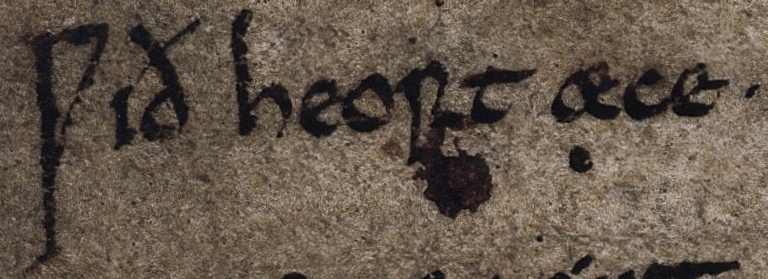 Ƿið heort ece·